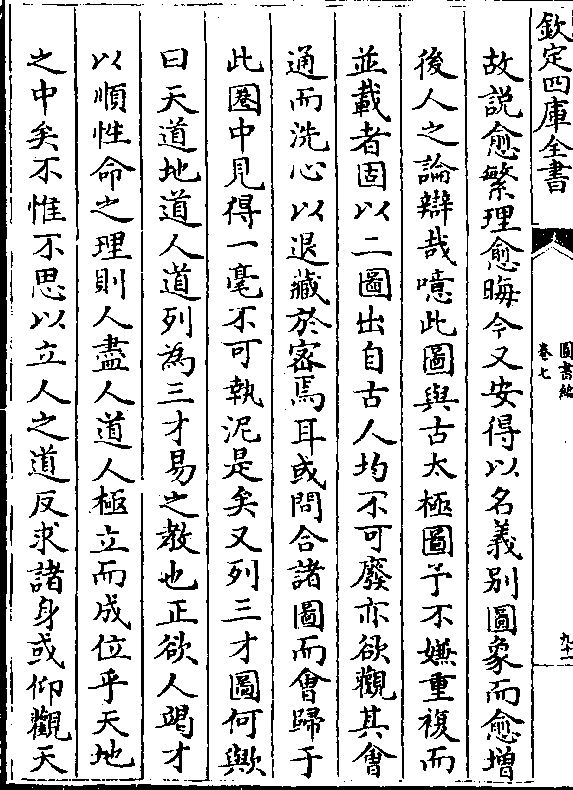 欽定四庫全書
圖書編
卷七
九十一
故説愈繁理愈晦今又安得以名義别圖象而愈增
後人之論辯哉噫此圖與古太極圖予不嫌重複而
並載者固以二圖出自古人均不可廢亦欲觀其會
通而洗心以退藏於宻焉耳或問合諸圖而會歸于
此圖中見得一毫不可執泥是矣又列三才圖何歟
曰天道地道人道列為三才易之教也正欲人竭才
以順性命之理則人盡人道人極立而成位乎天地
之中矣不惟不思以立人之道反求諸身或仰觀天